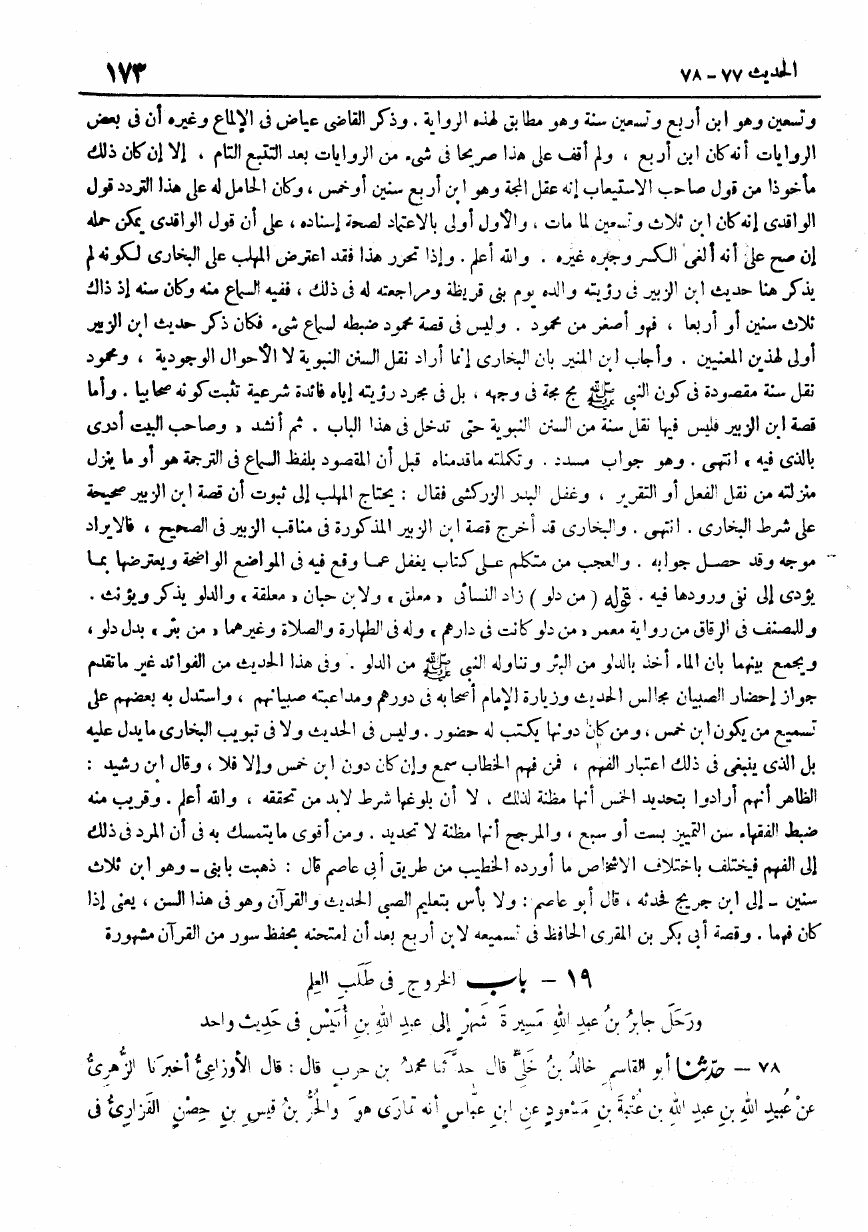 الحديث ٧٧ - ٧٨
١٧٣
وتسعين وهو ابن أربع وتسعين سنة وهو مطابق لهذه الرواية . وذكر القاضى عياض فى الإلماع وغيره أن فى بعض
الروايات أنه كان ابن أربع ، ولم أقف على هذا صريحا فى شىء من الروايات بعد التتبع التام ، إلا إن كان ذلك
مأخوذا من قول صاحب الاستيعاب إنه عقل المجة وهو ابن أربع سنين أو خمس ، وكان الحامل له على هذا التردد قول
الواقدى إنه كان ابن ثلاث وتسعين لما مات ، والأول أولى بالاعتماد لصحة إسناده ، على أن قول الواقدى يمكن حمله
إن صح على أنه ألغى الكسر وجبره غيره . والله أعلم . وإذا تحرر هذا فقد اعترض المهلب على البخارى لكونه لم
يذكر هنا حديث ابن الزبير فى رؤيته والده يوم بنى قريظة ومراجعته له فى ذلك ، ففيه السماع منه وكان سنه إذ ذاك
ثلاث سنين أو أربعا ، فهو أصغر من محمود . وليس فى قصة محمود ضبطه لسماع شىء فكان ذكر حديث ابن الزبير
أولى لهذين المعنيين . وأجاب ابن المنير بان البخارى إنما أراد نقل السنن النبوية لا الأحوال الوجودية ، ومحمود
نقل سنة مقصودة فى كون النبى ﷺ مج مجة فى وجهه ، بل فى مجرد رؤيته إياه فائدة شرعية تثبت كونه صحابيا . وأما
قصة ابن الزبير فليس فيها نقل سنة من السنن النبوية حتى تدخل فى هذا الباب . ثم أنشد « وصاحب البيت أدرى
بالذى فيه » انتهى . وهو جواب مسدد . وتكملته ماقدمناه قبل أن المقصود بلفظ السماع فى الترجمة هو أو ما ينزل
منزلته من نقل الفعل أو التقرير ، وغفل البدر الزركشى فقال : يحتاج المهلب إلى ثبوت أن قصة ابن الزبير صحيحة
على شرط البخارى . انتهى . والبخارى قد أخرج قصة ابن الزبير المذكورة فى مناقب الزبير فى الصحيح ، فالايراد
موجه وقد حصل جوابه . والعجب من متكلم على كتاب يغفل عما وقع فيه فى المواضع الواضحة ويعترضها بما
يؤدى إلى نفى ورودها فيه . قوله ( من دلو ) زاد النسائى « معلق » ولابن حبان « معلقة » والدلو يذكر ويؤنث .
وللمصنف فى الرقاق من رواية معمر « من دلو كانت فى دارهم » وله فى الطهارة والصلاة وغيرهما « من بئر » بدل دلو ،
ويجمع بينهما بان الماء أخذ بالدلو من البئر وتناوله النبى ﷺ من الدلو . وفى هذا الحديث من الفوائد غير ماتقدم
جواز إحضار الصبيان مجالس الحديث وزيارة الإمام أصحابه فى دورهم ومداعبته صبيانهم ، واستدل به بعضهم على
تسميع من يكون ابن خمس ، ومن كان دونها يكتب له حضور . وليس فى الحديث ولا فى تبويب البخارى مايدل عليه
بل الذى ينبغى فى ذلك اعتبار الفهم ، فمن فهم الخطاب سمع وإن كان دون ابن خمس وإلا فلا ، وقال ابن رشيد :
الظاهر أنهم أرادوا بتحديد الخمس أنها مظنة لذلك ، لا أن بلوغها شرط لابد من تحققه ، والله أعلم . وقريب منه
ضبط الفقهاء سن التمييز بست أو سبع ، والمرجح أنها مظنة لا تحديد . ومن أقوى مايتمسك به فى أن المرد فى ذلك
إلى الفهم فيختلف باختلاف الاشخاص ما أورده الخطيب من طريق أبى عاصم قال : ذهبت بابنى - وهو ابن ثلاث
سنين - إلى ابن جريج فحدثه ، قال أبو عاصم : ولا بأس بتعليم الصبى الحديث والقرآن وهو فى هذا السن ، يعنى إذا
كان فهما . وقصة أبى بكر بن المقرى الحافظ فى تسميعه لابن أربع بعد أن إمتحنه بحفظ سور من القرآن مشهورة
١٩ - باب الخروجِ فى طَلَبِ العلم
ورَحَلَ جابرُ بنُ عبدِ اللهِ مَسِيرةَ شَهْرٍ إلى عبدِ اللهِ بنِ أُنَيْسٍ فى حَديث واحد
٧٨ - حدّثنا أبو القاسمِ خالدُ بنُ خَلِىٍّ قال حدَّثَنا محمدُ بن حربٍ قال : قال الأوزاعىُّ أخبرَنا الزُّهرىُّ
عنْ عُبيدِ اللهِ بنِ عبدِ اللهِ بنِ عُتْبةَ بنِ مَسْعودٍ عنِ ابنِ عبَّاسٍ أنه تمارَى هوَ والحُرُّ بنُ قيسِ بنِ حِصْنٍ الفَزارىُّ فى